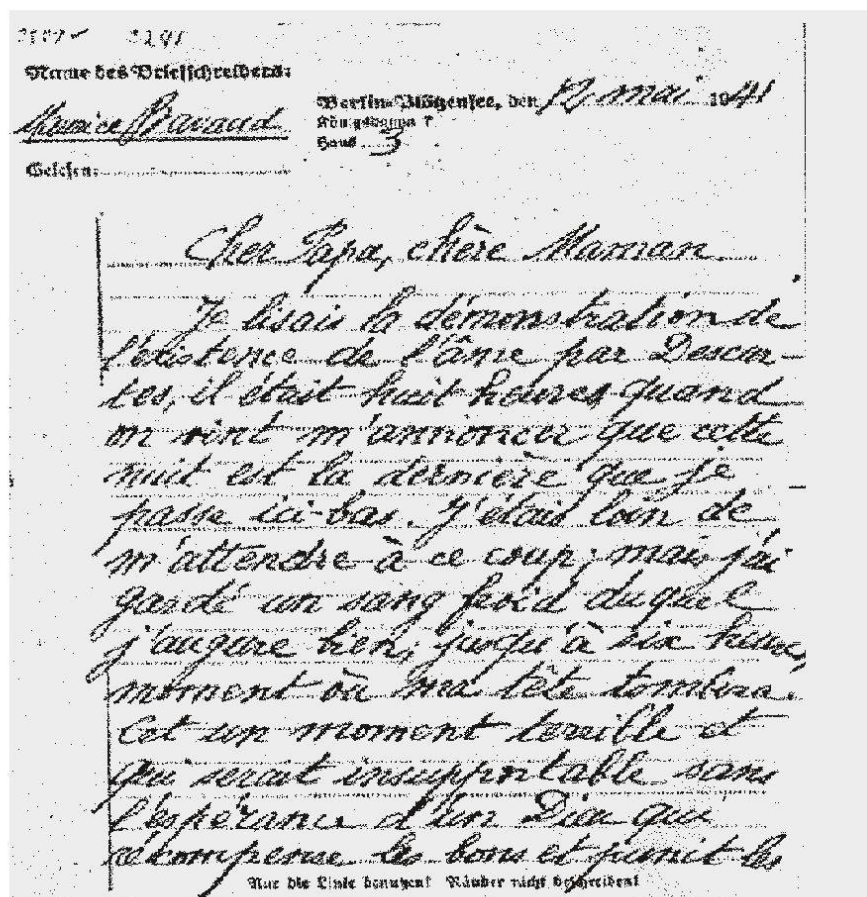 Name des Briefschreibers:
Maurice Bavaud
Berlin-Plötzensee, den 12 mai 1941
Königsdamm 7
Haus 3
Gelesen:
Cher Papa, chère Maman
Je lisais la démonstration de
l'existence de l'âme par Descar-
tes, il était huit heures quand
on vint m'annoncer que cette
nuit est la dernière que je
passe ici-bas. J'étais loin de
m'attendre à ce coup; mais j'ai
gardé un sang froid duquel
j'augure bien, jusqu'à six heures,
moment où ma tête tombera.
Cet un moment terrible et
qui serait insupportable sans
l'espérance d'un Dieu qui
récompense les bons et punit les
Nur die Linie benutzen! Ränder nicht beschreiben!